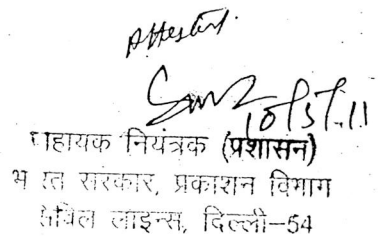 Attested.
10/5/11
सहायक नियंत्रक (प्रशासन)
भारत सरकार, प्रकाशन विभाग
सिविल लाइन्स, दिल्ली-54